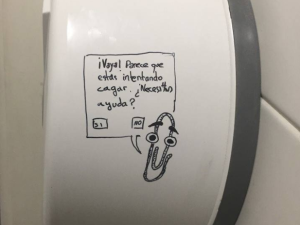 ¡Vaya! Parece que
estás intentando
cagar. ¿Necesitas
ayuda?
SI NO